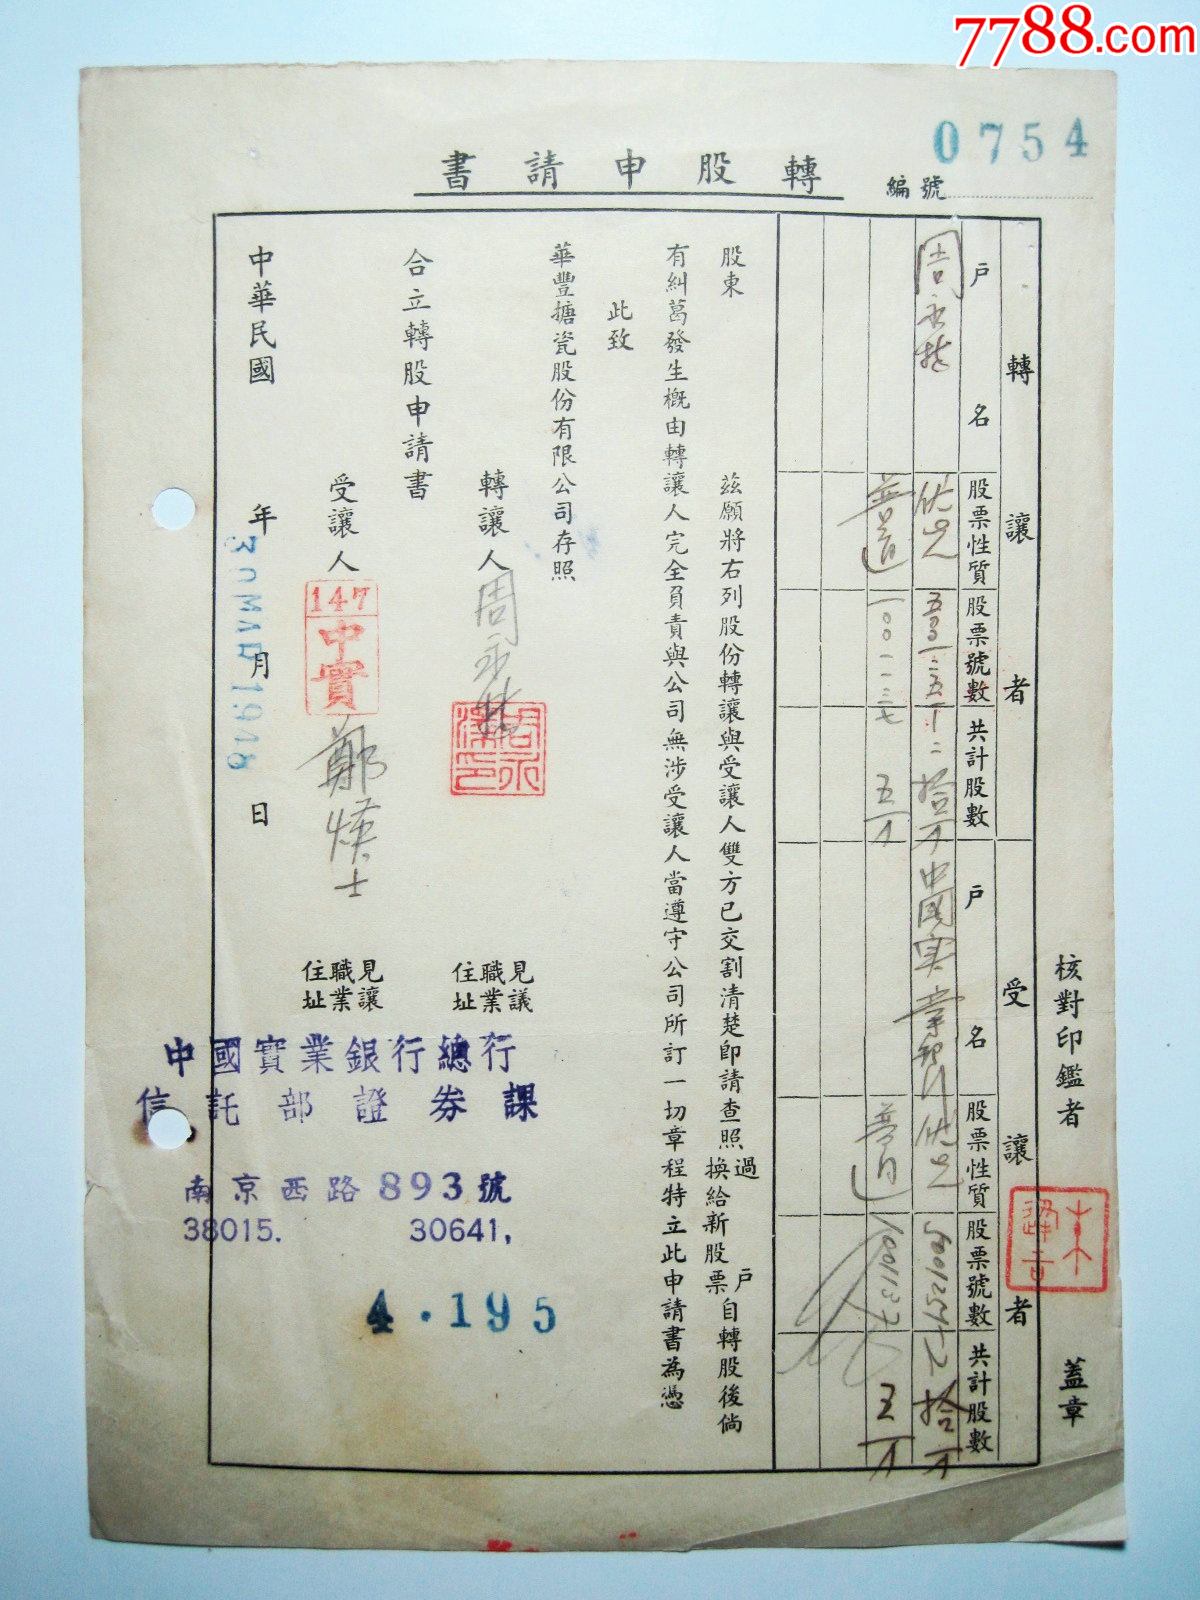 7788.com
0754
編號
轉股申請書
核對印鑑者 蓋章
轉讓者 受讓者
戶名 股票性質 股票號數 共計股數 戶名 股票性質 股票號數 共計股數
周永 優先 拾 中國實業銀行 優先 拾
普通 一〇〇一一三七 五 普通 1001137 五
股東 茲願將右列股份轉讓與受讓人雙方已交割清楚即請查照過戶換給新股票自轉股後倘
有糾葛發生概由轉讓人完全負責與公司無涉受讓人當遵守公司所訂一切章程特立此申請書為憑
此致
華豐搪瓷股份有限公司存照
轉讓人 周永 見議 職業 住址
合立轉股申請書
受讓人 147 中實 鄭煐士 見讓 職業 住址
中華民國 年 月 日
中國實業銀行總行
信託部證券課
南京西路893號
38015. 30641,
4.195